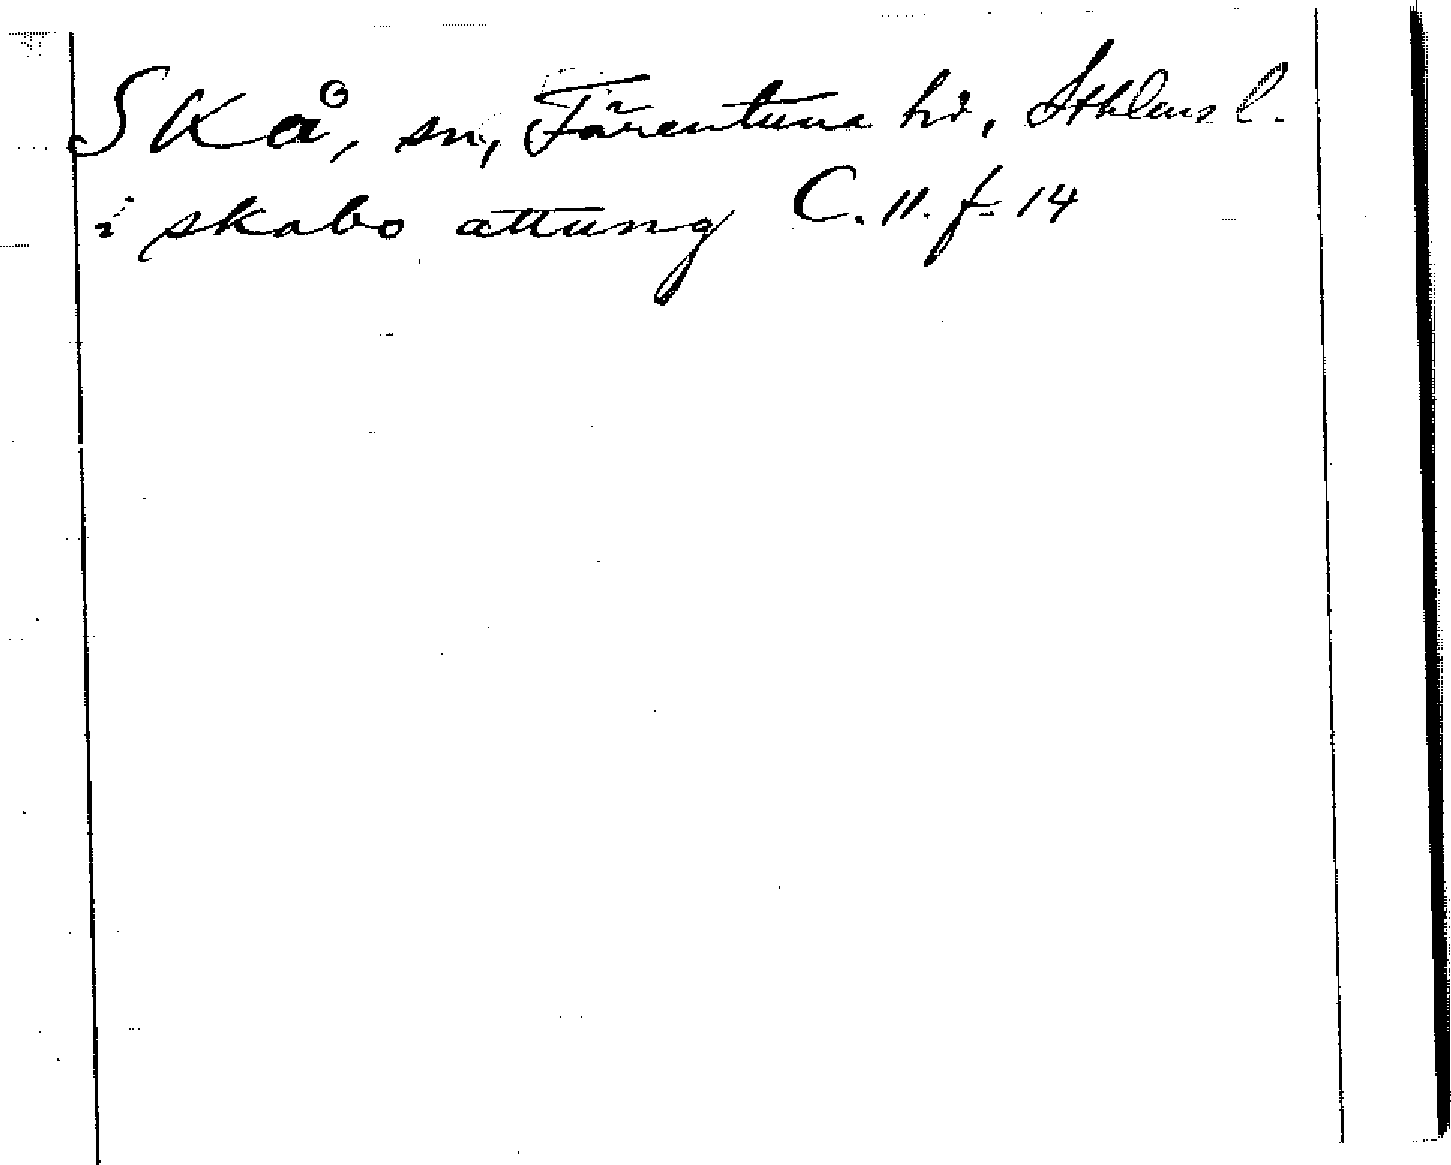 SKå, sn, Färentuna hd, Sthlms l.
i skabo attung C. 11. f. 14